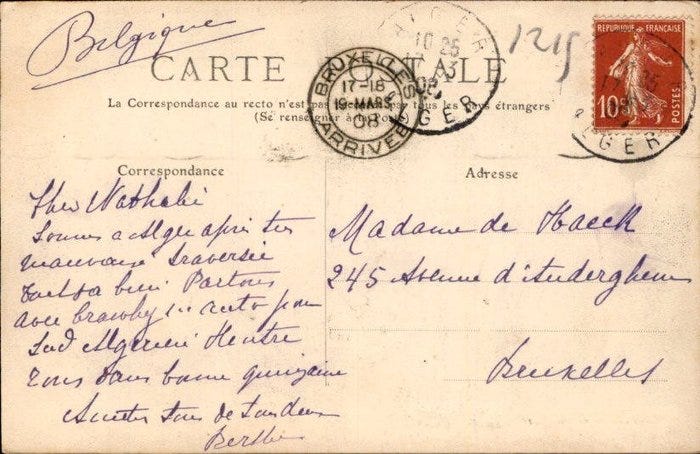 Belgique
CARTE POSTALE
La Correspondance au recto n'est pas par tous les pays étrangers
(Se renseigner à la Poste)
BRUXELLES
17-18
19 MARS
08
ARRIVEE
ALGER
10 25
ALGER
1215
RÉPUBLIQUE FRANÇAISE
10
POSTES
ALGER
Correspondance
Chère Nathalie
Sommes à Alger après très
mauvaise traversée
tout va bien Partons
avec en auto pour
Sud Algérien
vous dans bonne quinzaine
tous deux
Berthe
Adresse
Madame de Haeck
245 Avenue d'Auderghem
Bruxelles